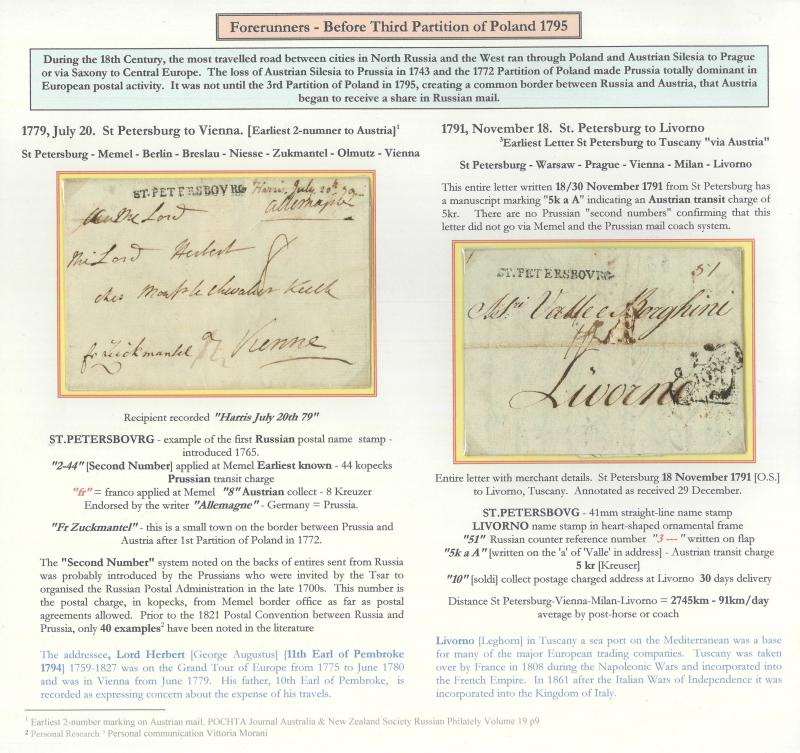 Forerunners - Before Third Partition of Poland 1795
During the 18th Century, the most travelled road between cities in North Russia and the West ran through Poland and Austrian Silesia to Prague
or via Saxony to Central Europe. The loss of Austrian Silesia to Prussia in 1743 and the 1772 Partition of Poland made Prussia totally dominant in
European postal activity. It was not until the 3rd Partition of Poland in 1795, creating a common border between Russia and Austria, that Austria
began to receive a share in Russian mail.
1779, July 20. St Petersburg to Vienna. [Earliest 2-numner to Austria]¹
St Petersburg - Memel - Berlin - Breslau - Niesse - Zukmantel - Olmutz - Vienna
ST.PETERSBOVRG Harris, July 20th 79
allemagne
Mi Lord
Mi Lord Herbert 8
chez Keith
fr Zuckmantel Vienne
Recipient recorded "Harris July 20th 79"
ST.PETERSBOVRG - example of the first Russian postal name stamp -
introduced 1765.
"2-44" [Second Number] applied at Memel Earliest known - 44 kopecks
Prussian transit charge
"fr" = franco applied at Memel "8" Austrian collect - 8 Kreuzer
Endorsed by the writer "Allemagne" - Germany = Prussia.
"Fr Zuckmantel" - this is a small town on the border between Prussia and
Austria after 1st Partition of Poland in 1772.
The "Second Number" system noted on the backs of entires sent from Russia
was probably introduced by the Prussians who were invited by the Tsar to
organised the Russian Postal Administration in the late 1700s. This number
is the postal charge, in kopecks, from Memel border office as far as postal
agreements allowed. Prior to the 1821 Postal Convention between Russia and
Prussia, only 40 examples² have been noted in the literature
The addressee, Lord Herbert [George Augustus] [11th Earl of Pembroke
1794] 1759-1827 was on the Grand Tour of Europe from 1775 to June 1780
and was in Vienna from June 1779. His father, 10th Earl of Pembroke, is
recorded as expressing concern about the expense of his travels.
1791, November 18. St. Petersburg to Livorno
³Earliest Letter St Petersburg to Tuscany "via Austria"
St Petersburg - Warsaw - Prague - Vienna - Milan - Livorno
This entire letter written 18/30 November 1791 from St Petersburg has
a manuscript marking "5k a A" indicating an Austrian transit charge of
5kr. There are no Prussian "second numbers" confirming that this
letter did not go via Memel and the Prussian mail coach system.
ST.PETERSBOVRG 51
Valle e Borghini
Livorno
Entire letter with merchant details. St Petersburg 18 November 1791 [O.S.]
to Livorno, Tuscany. Annotated as received 29 December.
ST.PETERSBOVG - 41mm straight-line name stamp
LIVORNO name stamp in heart-shaped ornamental frame
"51" Russian counter reference number "3 ---" written on flap
"5k a A" [written on the 'a' of 'Valle' in address] - Austrian transit charge
5 kr [Kreuser]
"10" [soldi] collect postage charged address at Livorno 30 days delivery
Distance St Petersburg-Vienna-Milan-Livorno = 2745km - 91km/day
average by post-horse or coach
Livorno [Leghorn] in Tuscany a sea port on the Mediterranean was a base
for many of the major European trading companies. Tuscany was taken
over by France in 1808 during the Napoleonic Wars and incorporated into
the French Empire. In 1861 after the Italian Wars of Independence it was
incorporated into the Kingdom of Italy.
¹ Earliest 2-number marking on Austrian mail. POCHTA Journal Australia & New Zealand Society Russian Philately Volume 19 p9
² Personal Research ³ Personal communication Vittoria Morani